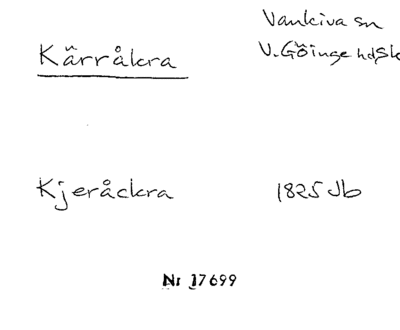 Vankiva sn
Kärråkra
V. Göinge hd, Sk
Kjeråckra 1825 Jb
Nr 17699